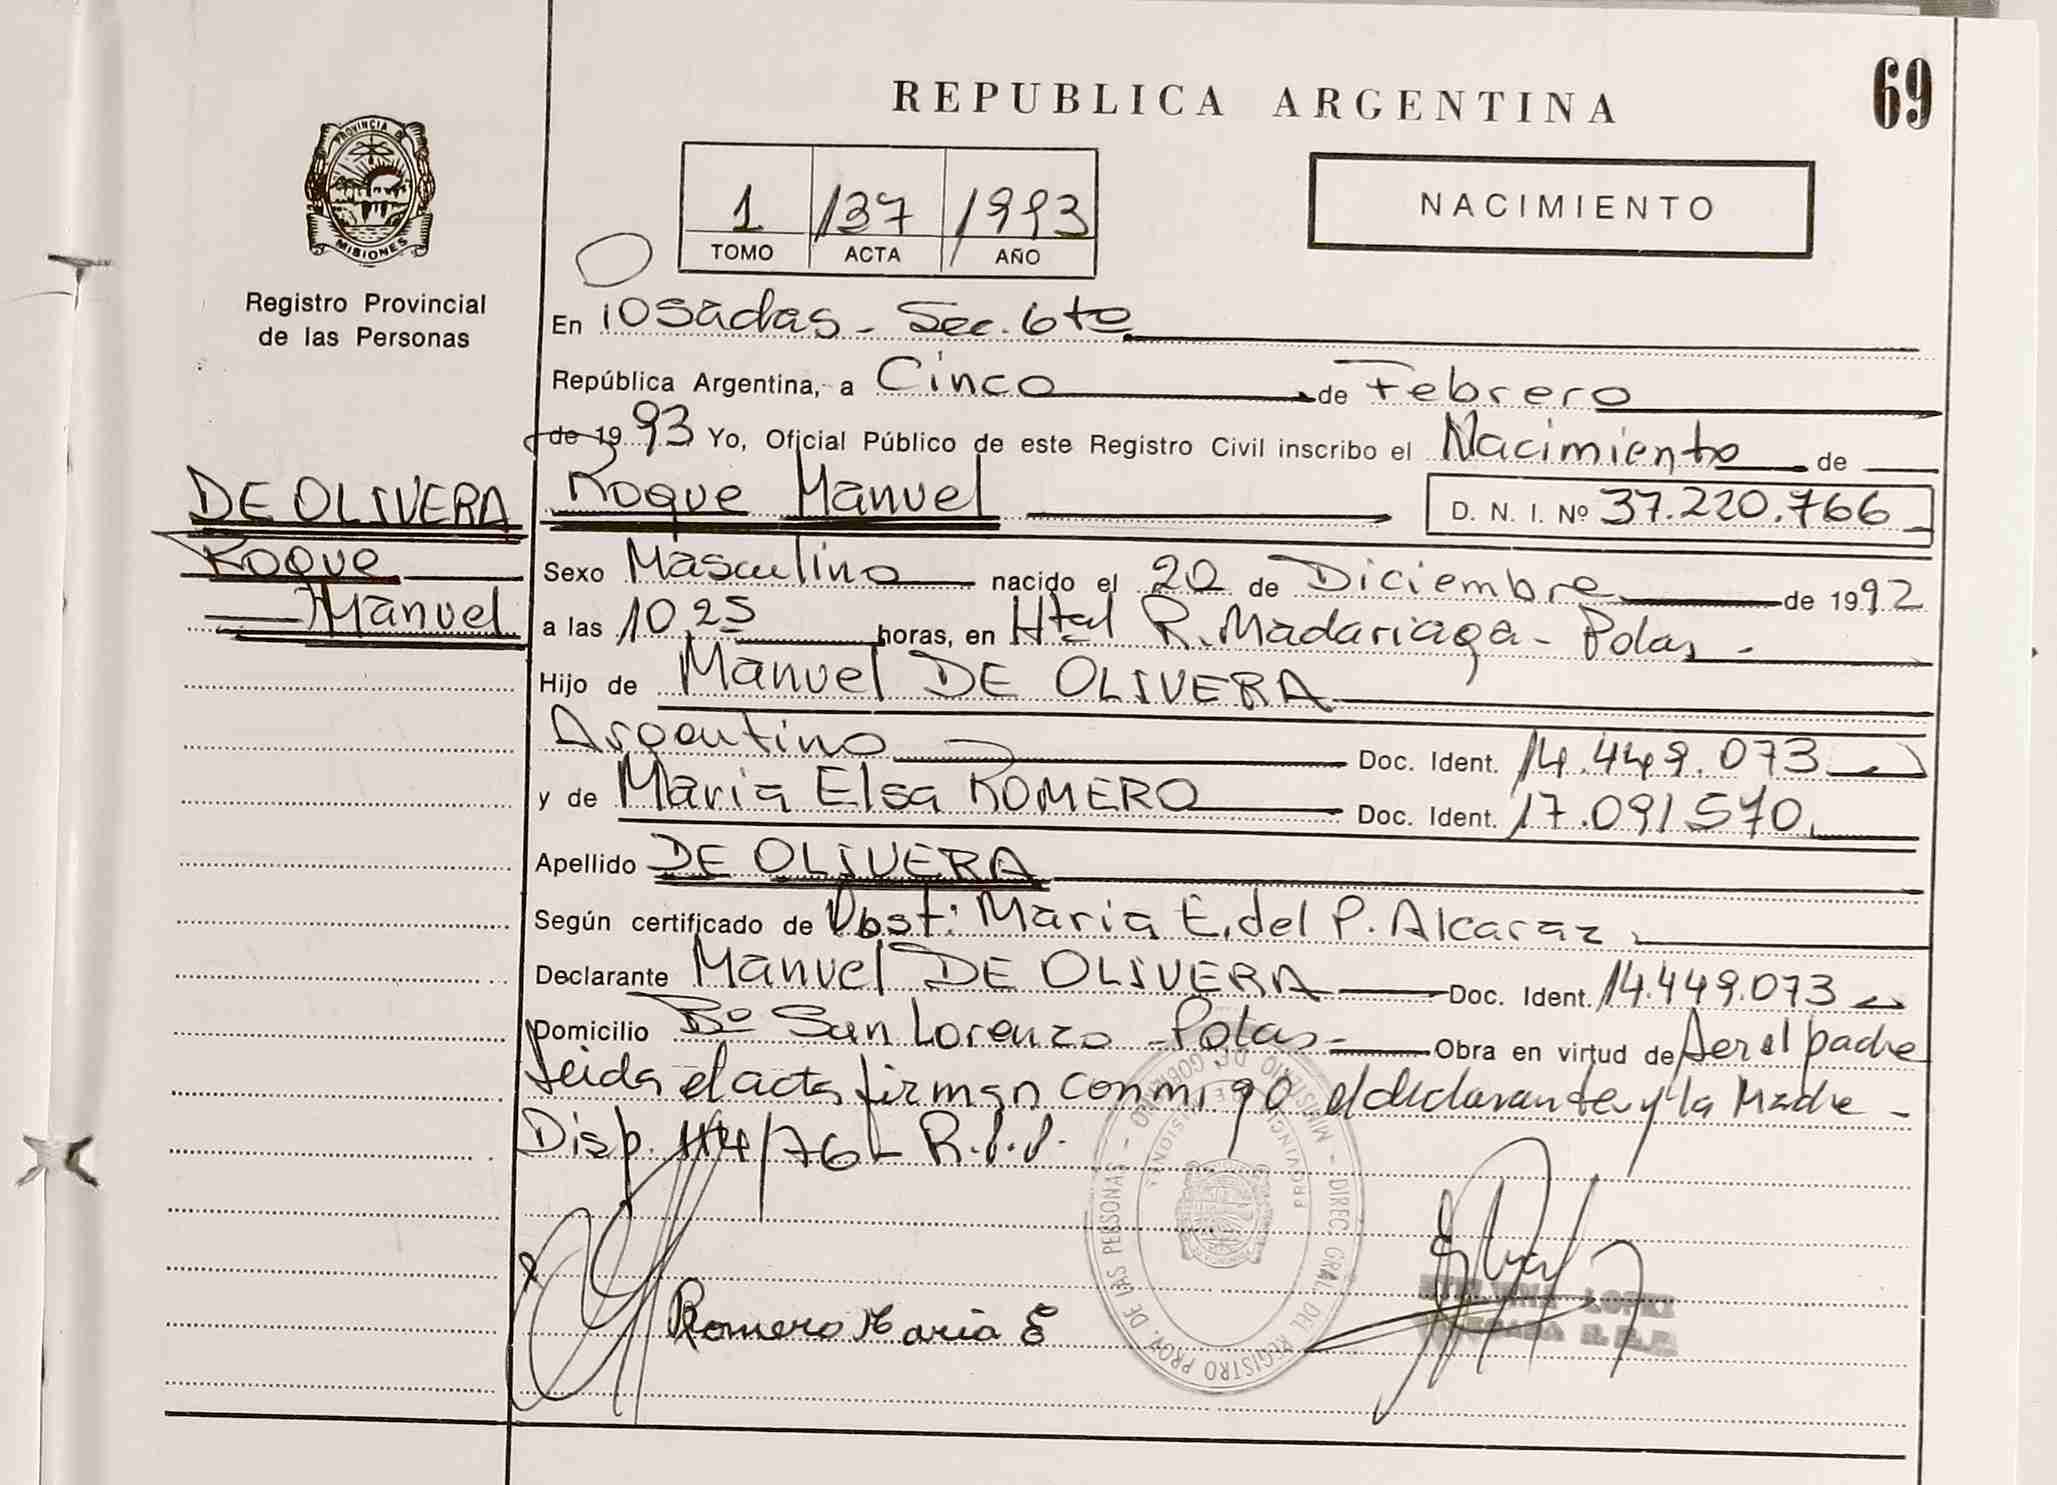 REPUBLICA ARGENTINA
69
PROVINCIA DE
MISIONES
Registro Provincial
de las Personas
1 137 1993
TOMO ACTA AÑO
NACIMIENTO
En Posadas - Sec. 6ta
República Argentina, a Cinco de Febrero
de 1993 Yo, Oficial Público de este Registro Civil inscribo el Nacimiento de
DE OLIVERA
Roque
Manuel
Roque Manuel D. N. I. Nº 37.220.766
Sexo Masculino nacido el 20 de Diciembre de 1992
a las 10 25 horas, en Htal R. Madariaga - Pdas -
Hijo de Manuel DE OLIVERA
Argentino Doc. Ident. 14.449.073
y de Maria Elsa ROMERO Doc. Ident. 17.091570
Apellido DE OLIVERA
Según certificado de Obst: Maria E. del P. Alcaraz
Declarante Manuel DE OLIVERA Doc. Ident. 14.449.073
Domicilio Bº San Lorenzo - Pdas - Obra en virtud de Ser el padre
Leida el acta firman conmigo el declarante y la Madre -
Disp. 114/76 - R.P.P.
Romero Maria E
MINISTERIO DE GOBIERNO - DIREC. GRAL. DEL REGISTRO PROV. DE LAS PERSONAS -
PROVINCIA DE MISIONES
LOPEZ